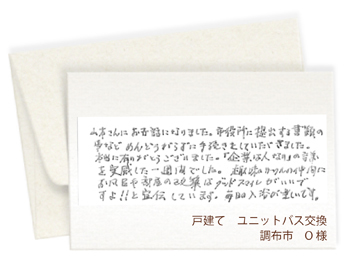 山本さんにお世話になりました。市役所に提出する書類の
事など めんどうがらずに手続きをしていただきました。
本当に有りがとうございました。「企業は人なり」の言葉
を実感した一週間でした。趣味の の仲間に
お風呂や部屋の改築はグッドスマイルがいいで
すよ!!と宣伝しています。毎日入浴が楽しいです。
戸建て ユニットバス交換
調布市 O様